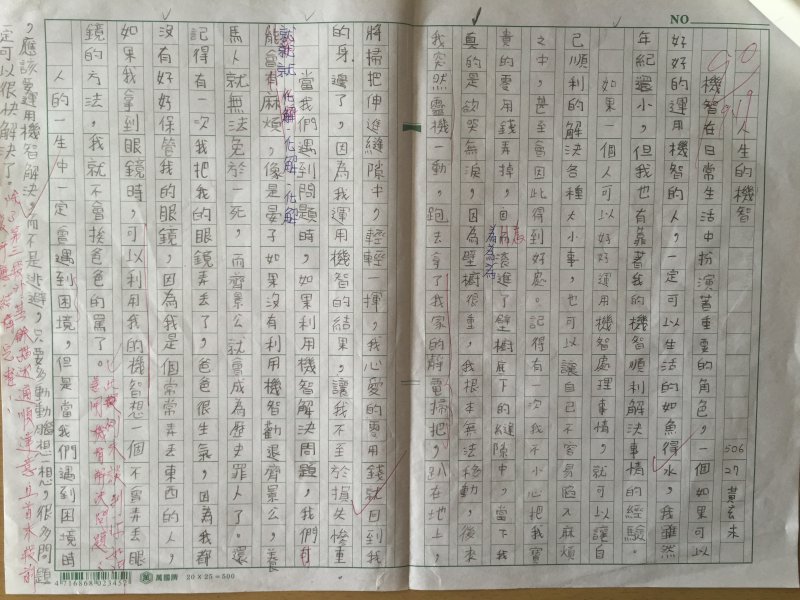 NO
90
人生的機智
506
27
黃
機智在日常生活中扮演著重要的角色，一個如果可以
好好的運用機智的人，一定可以生活的如魚得水，我雖然
年紀還小，但我也有靠著我的機智順利解決事情的經驗。
如果一個人可以好好運用機智處理事情，就可以讓自
己順利的解決各種大小事，也可以讓自己不容易陷入麻煩
之中，甚至會因此得到好處。記得有一次我不小心把我寶
貴的零用錢弄掉，因為滾進了壁櫥底下的縫隙中，當下我
真的是欲哭無淚，因為壁櫥很重，我根本無法移動，後來
我突然靈機一動，跑去拿了我家的靜電掃把，趴在地上，
將掃把伸進縫隙中，輕輕一揮，我心愛的零用錢就回到我
的身邊了，因為我運用機智的結果，讓我不至於損失慘重。
當我們遇到問題時，如果利用機智解決問題，我們有
能會有麻煩，像是晏子如果沒有利用機智勸退齊景公，養
馬人就無法免於一死，而齊景公就會成為歷史罪人了。還
記得有一次我把我的眼鏡弄丟了，爸爸很生氣，因為我都
沒有好好保管我的眼鏡，因為我是個常常弄丟東西的人，
如果我拿到眼鏡時，可以利用我的機智想一個不會弄丟眼
鏡的方法，我就不會挨爸爸的罵了。
人的一生中一定會遇到困境，但是當我們遇到困境時
，應該要運用機智解決，而不是逃避，只要多動動腦想想，很多問題
一定可以很快解決了。
化解、化解、化解
萬國牌 20×25=500
4 716868 023457